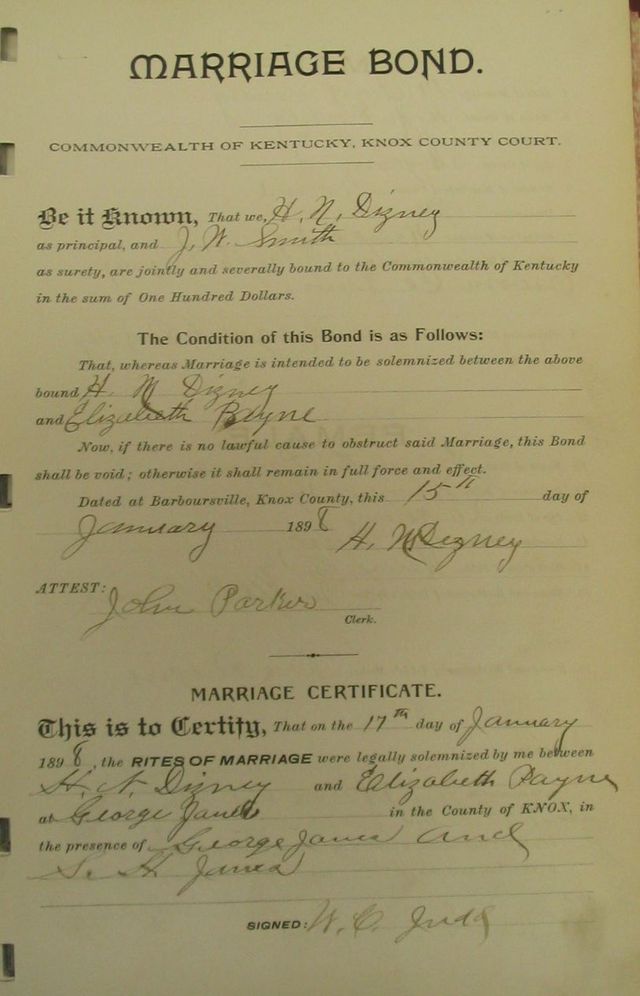 MARRIAGE BOND.
COMMONWEALTH OF KENTUCKY, KNOX COUNTY COURT.
Be it Known, That we, H. N. Dizney
as principal, and J. W. Smith
as surety, are jointly and severally bound to the Commonwealth of Kentucky
in the sum of One Hundred Dollars.
The Condition of this Bond is as Follows:
That, whereas Marriage is intended to be solemnized between the above
bound H. N Dizney
and Elizabeth Payne
Now, if there is no lawful cause to obstruct said Marriage, this Bond
shall be void; otherwise it shall remain in full force and effect.
Dated at Barboursville, Knox County, this 15th day of
January 1898
H. N. Dizney
ATTEST:
John Parker
Clerk.
MARRIAGE CERTIFICATE.
This is to Certify, That on the 17th day of January
1898, the RITES OF MARRIAGE were legally solemnized by me between
H. N. Dizney and Elizabeth Payne
at George Janes in the County of KNOX, in
the presence of George Janes and
S. H Janes
SIGNED: W. C. Judd